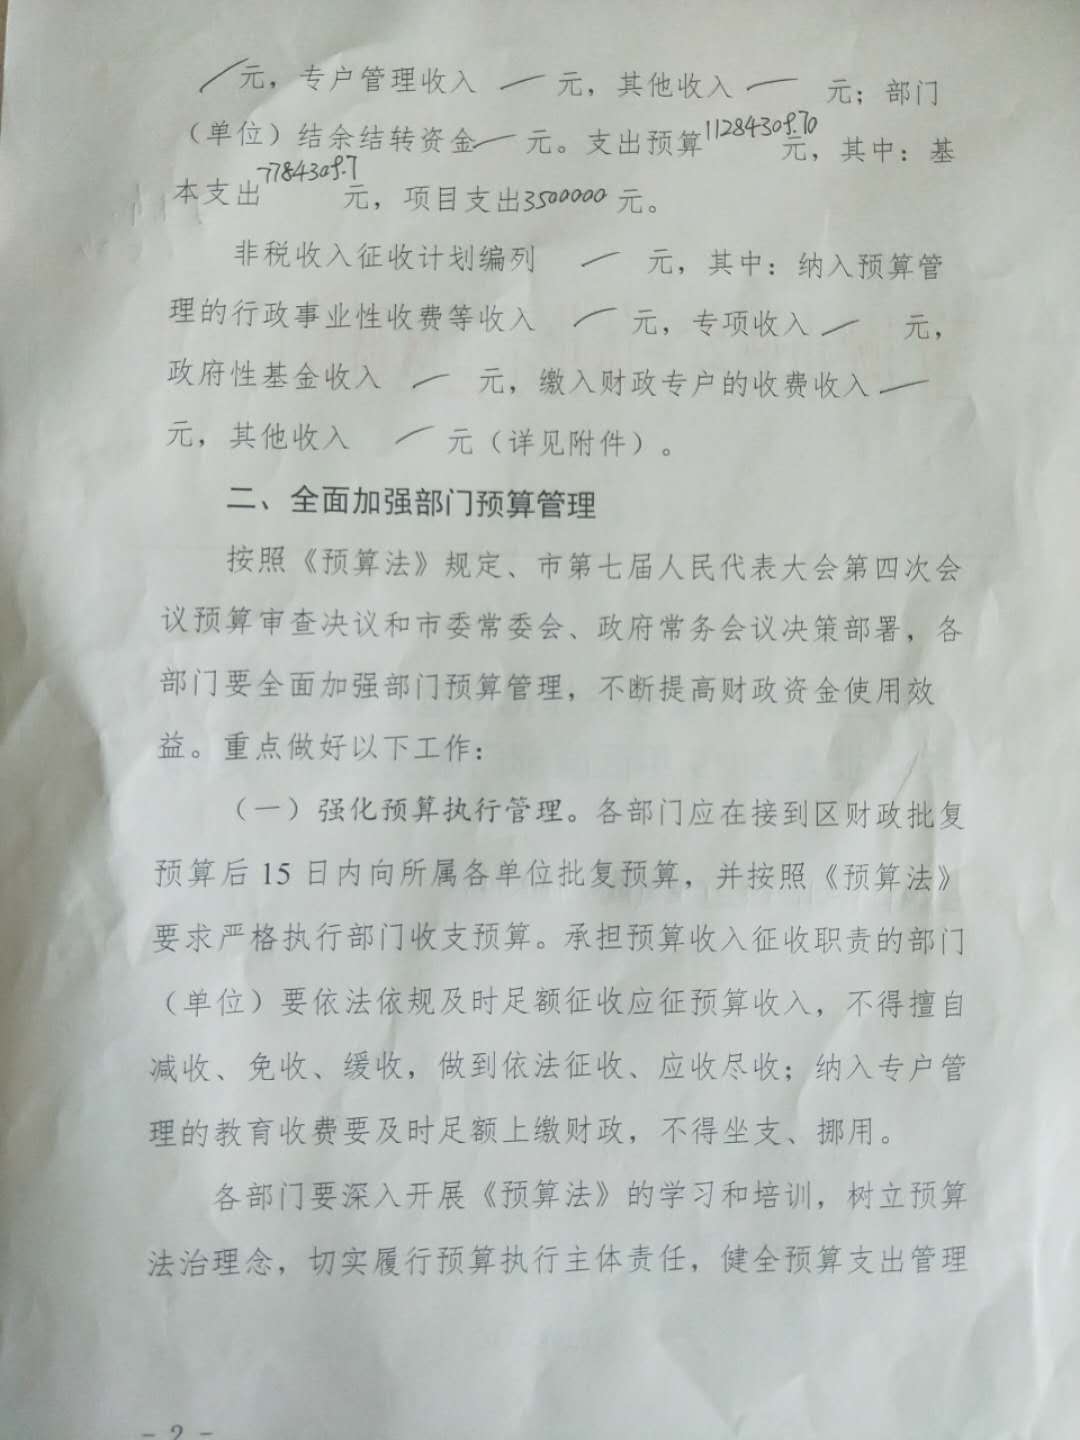 ／元，专户管理收入 ／ 元，其他收入 ／ 元；部门
（单位）结余结转资金／ 元。支出预算11284309.70元，其中：基
本支出7784309.7元，项目支出3500000元。
非税收入征收计划编列 ／ 元，其中：纳入预算管
理的行政事业性收费等收入 ／ 元，专项收入 ／ 元，
政府性基金收入 ／ 元，缴入财政专户的收费收入／
元，其他收入 ／ 元（详见附件）。
二、全面加强部门预算管理
按照《预算法》规定、市第七届人民代表大会第四次会
议预算审查决议和市委常委会、政府常务会议决策部署，各
部门要全面加强部门预算管理，不断提高财政资金使用效
益。重点做好以下工作：
（一）强化预算执行管理。各部门应在接到区财政批复
预算后 15 日内向所属各单位批复预算，并按照《预算法》
要求严格执行部门收支预算。承担预算收入征收职责的部门
（单位）要依法依规及时足额征收应征预算收入，不得擅自
减收、免收、缓收，做到依法征收、应收尽收；纳入专户管
理的教育收费要及时足额上缴财政，不得坐支、挪用。
各部门要深入开展《预算法》的学习和培训，树立预算
法治理念，切实履行预算执行主体责任，健全预算支出管理
- 2 -